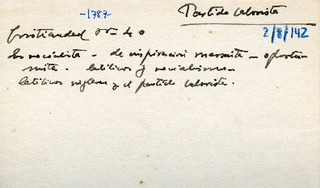 -1787-
Partido laborista
2/8/142
Cristiandad nº 40
Es socialista - de inspiración marxista - oportu
nista. Católicos y socialismo -
Católicos ingleses y el partido laborista.